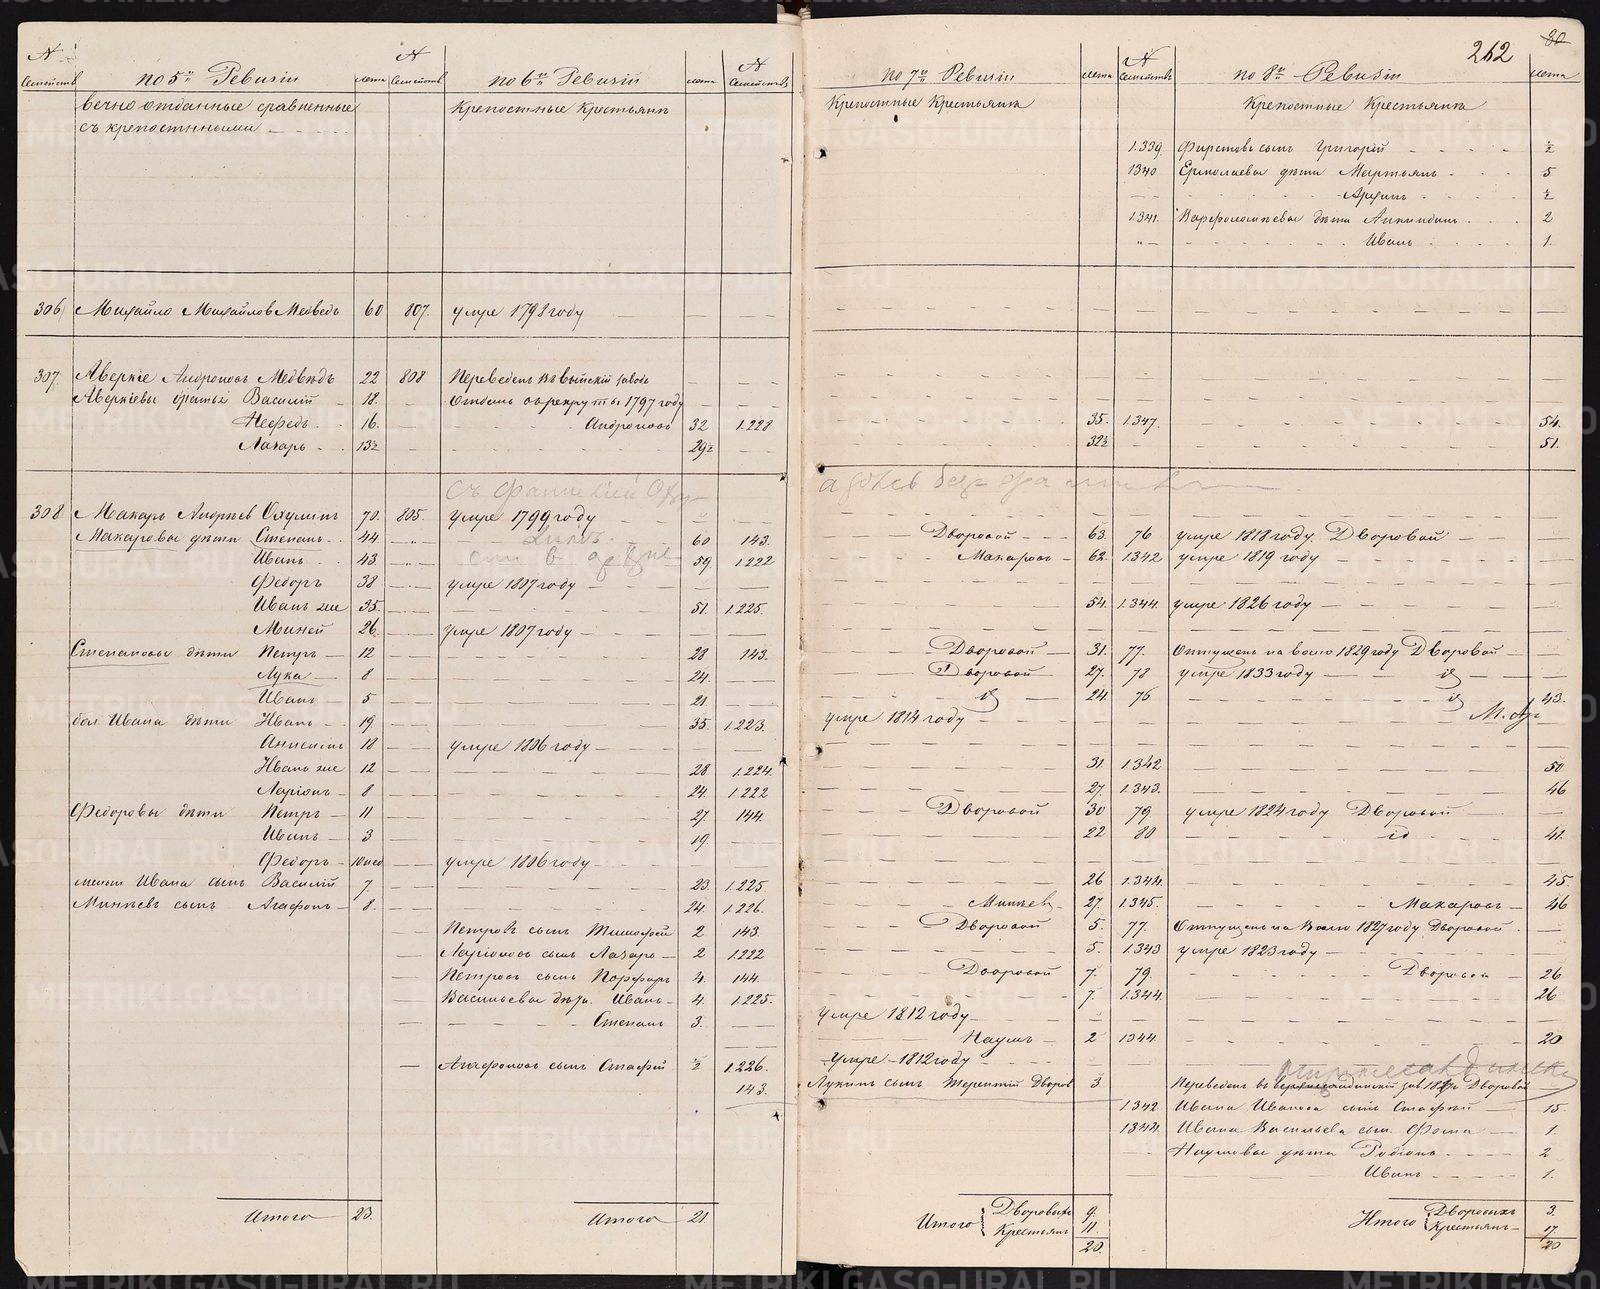 262
30
N Семействъ по 5й Ревизіи лета N Семействъ по 6й Ревизіи лета N Семействъ по 7й Ревизіи лета N Семействъ по 8й Ревизіи лета
вечно отданные сравненные Крепостные Крестьяне Крепостные Крестьяне Крепостные Крестьяне
съ крепостными
1.339. Фирстовъ сынъ Григорій ½
1340 Ермолаевы дѣти Мартьянъ 5
½
1341. Варфоломѣевы дѣти 2
Иванъ 1.
306 Михайло Михайловъ Медведь 60 807. умре 1798 году
307. Аверкіе Андроновъ Медвѣдь 22 808 Переведенъ въ Выйскій заводъ
Аверкіевы братья Василій 18. Отданъ въ рекруты 1797 году
Нефедъ 16. Андроновъ 32 1.228 35. 1.347. 54.
Лазарь 13½ 29½ 32½ 51.
308 Макаръ Андреевъ 70. 805. умре 1799 году
Макаровы дѣти Степанъ 44 60 143. Дворовой 63. 76 умре 1818 году. Дворовой
Иванъ 43. 59. 1.222 Макаровъ 62. 1342 умре 1819 году
Федоръ 38 умре 1807 году
Иванъ же 35. 51. 1.225. 54. 1.344. умре 1826 году
Миней 26. умре 1807 году
Степановы дѣти Петръ 12 28 143. Дворовой 31. 77. Отпущенъ на волю 1829 году Дворовой
Лука 8 24. Дворовой 27. 78 умре 1833 году
Иванъ 5 21 24. 76 43.
бол. Ивана дѣти Иванъ 19 35. 1.223. умре 1814 году
Анисимъ 18 умре 1806 году
Иванъ же 12 28 1.224. 31. 1.342 50
Ларіонъ 8 24. 1.222 27. 1.343. 46
Федоровы дѣти Петръ 11 27 144. Дворовой 30 79 умре 1824 году Дворовой
Иванъ 3 19. 22 80 41.
Федоръ 10 нед умре 1806 году
меньш Ивана сынъ Василій 7. 23. 1.225. 26 1.344. 45.
Минѣевъ сынъ Агафонъ 8. 24. 1.226. Минѣев 27. 1.345. Макаровъ 46
Петровъ сынъ Тимофей 2 143. Дворовой 5. 77. Отпущенъ на Волю 1827 году Дворовой
Ларіоновъ сынъ Лазарь 2 1222 5. 1.343 умре 1823 году
Петровъ сынъ Порфиръ 4. 144. Дворовой 7. 79. Дворовой 26
Васильевы дѣти Иванъ 4. 1.225. 7. 1.344. 26
Степанъ 3. умре 1812 году
Наумъ 2 1344 20
Агафоновъ сынъ Стафей ½ 1.226. умре 1812 году
143. Лукинъ сынъ Терентій Дворов 3
1342 Ивана Иванова сынъ Стафей 15.
1344. Ивана Васильева сын. Фома 1.
Наумовы дѣти Родіонъ 2
Иванъ 1.
Итого 23. Итого 21 Итого Дворовыхъ 9. Крестьянъ 11. 20. Итого Дворовыхъ 3. Крестьянъ 17. 20
METRIKI.GASO-URAL.RU